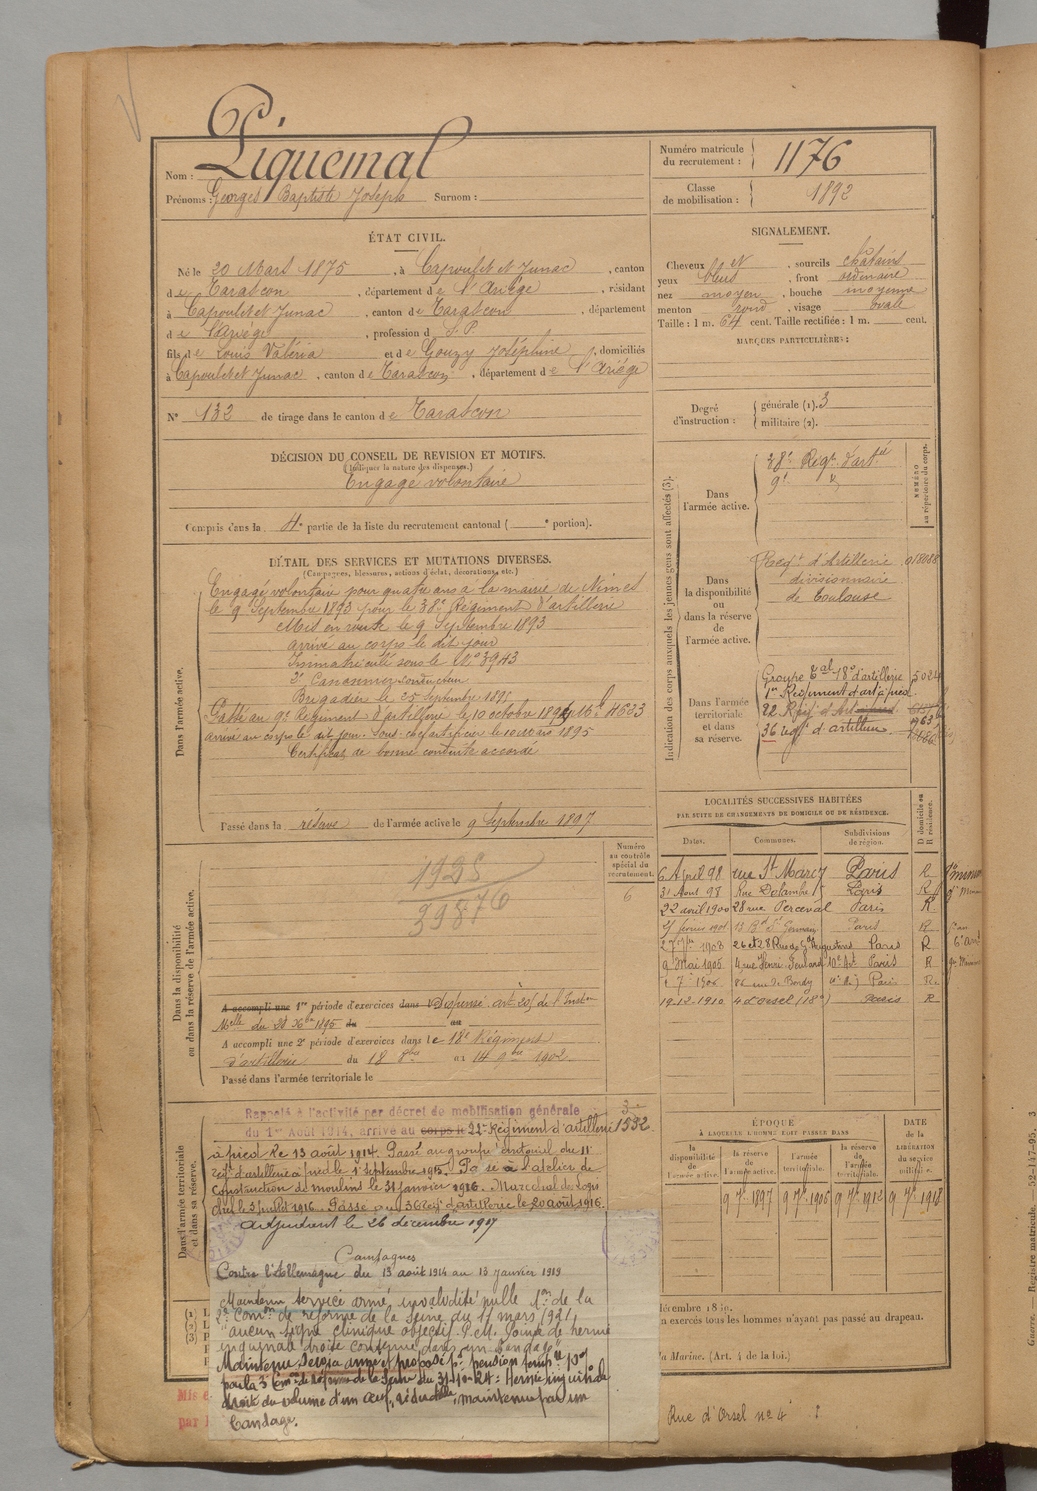 Nom : Piquemal
Prénoms : Georges Baptiste Joseph Surnom :
Numéro matricule du recrutement : 1176
Classe de mobilisation : 1892
ÉTAT CIVIL.
Né le 20 Mars 1875, à Capoulet et Junac, canton
de Tarascon, département de l'Ariège, résidant
à Capoulet et Junac, canton de Tarascon, département
de l'Ariège, profession d S. P.
fils de Louis Valéria et de Gouzy Joséphine, domiciliés
à Capoulet et Junac, canton de Tarascon, département de l'Ariège
N° 132 de tirage dans le canton de Tarascon
SIGNALEMENT.
Cheveux et, sourcils chatains
yeux bleus, front ordinaire
nez moyen, bouche moyenne
menton rond, visage ovale
Taille : 1 m. 64 cent. Taille rectifiée : 1 m. cent.
MARQUES PARTICULIÈRES :
Degré d'instruction : générale (1). 3
militaire (2).
DÉCISION DU CONSEIL DE REVISION ET MOTIFS.
(Indiquer la nature des dispenses.)
Engagé volontaire
Compris dans la 4e partie de la liste du recrutement cantonal ( e portion).
DÉTAIL DES SERVICES ET MUTATIONS DIVERSES.
(Campagnes, blessures, actions d'éclat, décorations, etc.)
Dans l'armée active.
Engagé volontaire pour quatre ans à la mairie de Nimes
le 9 Septembre 1893 pour le 38e Régiment d'artillerie
Mis en route le 9 Septembre 1893
arrivé au corps le dit jour
Immatriculé sous le N° 3943
2e Canonnier conducteur
Brigadier le 25 Septembre
Passé au 9e Régiment d'artillerie le 10 octobre 1894 Mle 4633
arrivé au corps le dit jour. Sous-chef artificier le 10 Mars 1895
Certificat de bonne conduite accordé
Passé dans la réserve de l'armée active le 9 Septembre 1897
Indication des corps auxquels les jeunes gens sont affectés (3).
NUMÉRO au répertoire du corps.
Dans l'armée active.
38e Régt d'artie
9e "
Dans la disponibilité ou dans la réserve de l'armée active.
Régt d'Artillerie 018088
divisionnaire
de Toulouse
Dans l'armée territoriale et dans sa réserve.
Groupe Tal 18e d'artillerie 5024
1er Régiment d'art à pied
22 Régt d'Art
36 régt d'artillerie
LOCALITÉS SUCCESSIVES HABITÉES
PAR SUITE DE CHANGEMENTS DE DOMICILE OU DE RÉSIDENCE.
D domicile ou R résidence.
Dates. Communes. Subdivisions de région.
6 Avril 98 rue St Marc Paris R
31 Aout 98 Rue Delambre Paris R
22 avril 1900 28 rue Perceval Paris R
13 Bd St Germain Paris R
26 et 28 Rue des Gds Augustins Paris R
9 Mai 1905 4 rue Henri 10e Art Paris R
rue de Bondy Paris R
19-12-1910 4 d'Orsel (18e) Paris R
Dans la disponibilité ou dans la réserve de l'armée active.
Numéro au contrôle spécial du recrutement.
6
1928
39876
A accompli une 1re période d'exercices dans Dispensé art 205 de l'Inston
Melle du 28 Xbre 1895 du au
A accompli une 2e période d'exercices dans le 18e Régiment
d'artillerie du 18 8bre au 14 9bre 1902
Passé dans l'armée territoriale le
Dans l'armée territoriale et dans sa réserve.
Rappelé à l'activité par décret de mobilisation générale
du 1er Août 1914, arrivé au corps le 22e Régiment d'artillerie 1552
à pied le 13 août 1914. Passé au groupe du 11e
régt d'artillerie à pied le 1er septembre 1915. Passé à l'atelier de
construction de moulins le 31 janvier 1916. Marechal des logis
le 3 juillet 1916. Passé au 36 Régt d'artillerie le 20 août 1916.
Adjudant le 26 décembre 1917
Campagnes
Contre l'Allemagne du 13 août 1914 au 13 janvier 1919
Maintenu service armé invalidité nulle de la
2e Comon de réforme de la Seine du 17 mars 1921
"aucun signe clinique objectif. P.M. Pointe de hernie
inguinale droite contenue dans un bandage"
Maintenu Service armé et proposé pr pension
par la 3e Con de réforme de la Seine du : Hernie inguinale
droite du volume d'un œuf, réductible, maintenue par un
bandage.
ÉPOQUE
À LAQUELLE L'HOMME DOIT PASSER DANS
la disponibilité de l'armée active. la réserve de l'armée active. l'armée territoriale. la réserve de l'armée territoriale.
DATE de la LIBÉRATION du service militaire.
9 7bre 1897 9 7bre 1912 9 7bre 1918
exercés tous les hommes n'ayant pas passé au drapeau.
la Marine. (Art. 4 de la loi.)
Rue d'Orsel n° 4
Guerre. — Registre matricule. — 92-147-95. 3